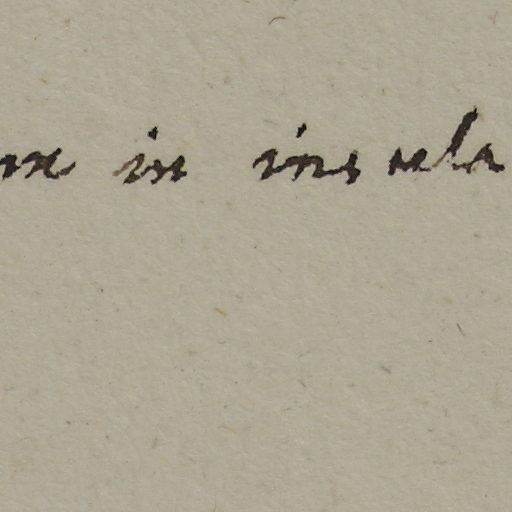 in insula